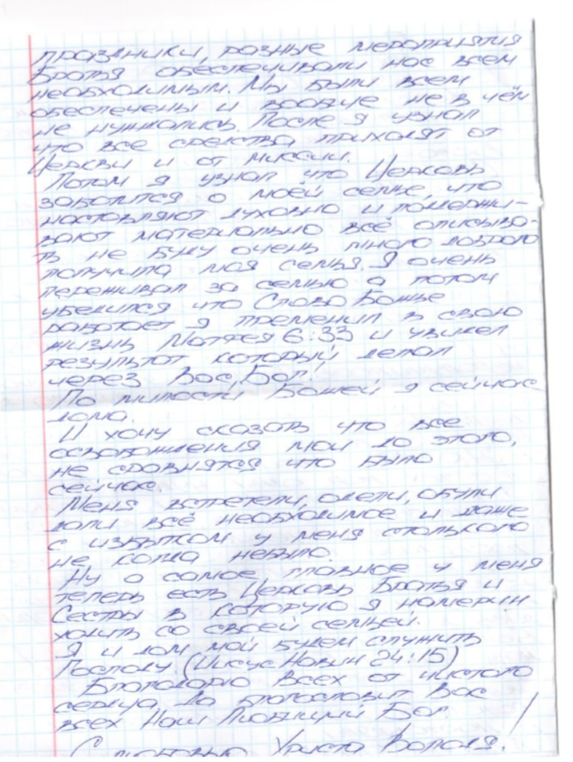 праздники, разные мероприятия
Братья обеспечивали нас всем
необходимым. Мы были всем
обеспечены и вообще не в чём
не нуждались. После я узнал
что все средства приходят от
Церкви и от миссии.
Потом я узнал что Церковь
заботится о моей семье, что
наставляют духовно и поддержи-
вают материально всё описыва-
ть не буду очень много доброго
получила моя семья. Я очень
переживал за семью а потом
убедился что Слово Божье
работает я применил в свою
жизнь Матфея 6:33 и увидел
результат который делал
через Вас, Бог.
По милости Божьей я сейчас
дома.
И хочу сказать что все
освобождения мои до этого,
не сравнятся что было
сейчас.
Меня встретели, одели, обули
дали всё необходимое и даже
с избытком у меня столького
не когда небыло.
Ну а самое главное у меня
теперь есть Церковь Братья и
Сестры в которую я намерин
ходить со своей семьёй.
Я и дом мой будем служить
Господу. (Иисус Навин 24:15)
Благодарю Всех от чистого
сердца, да благословит Вас
всех Наш Любящий Бог.
С любовью Христа Володя.